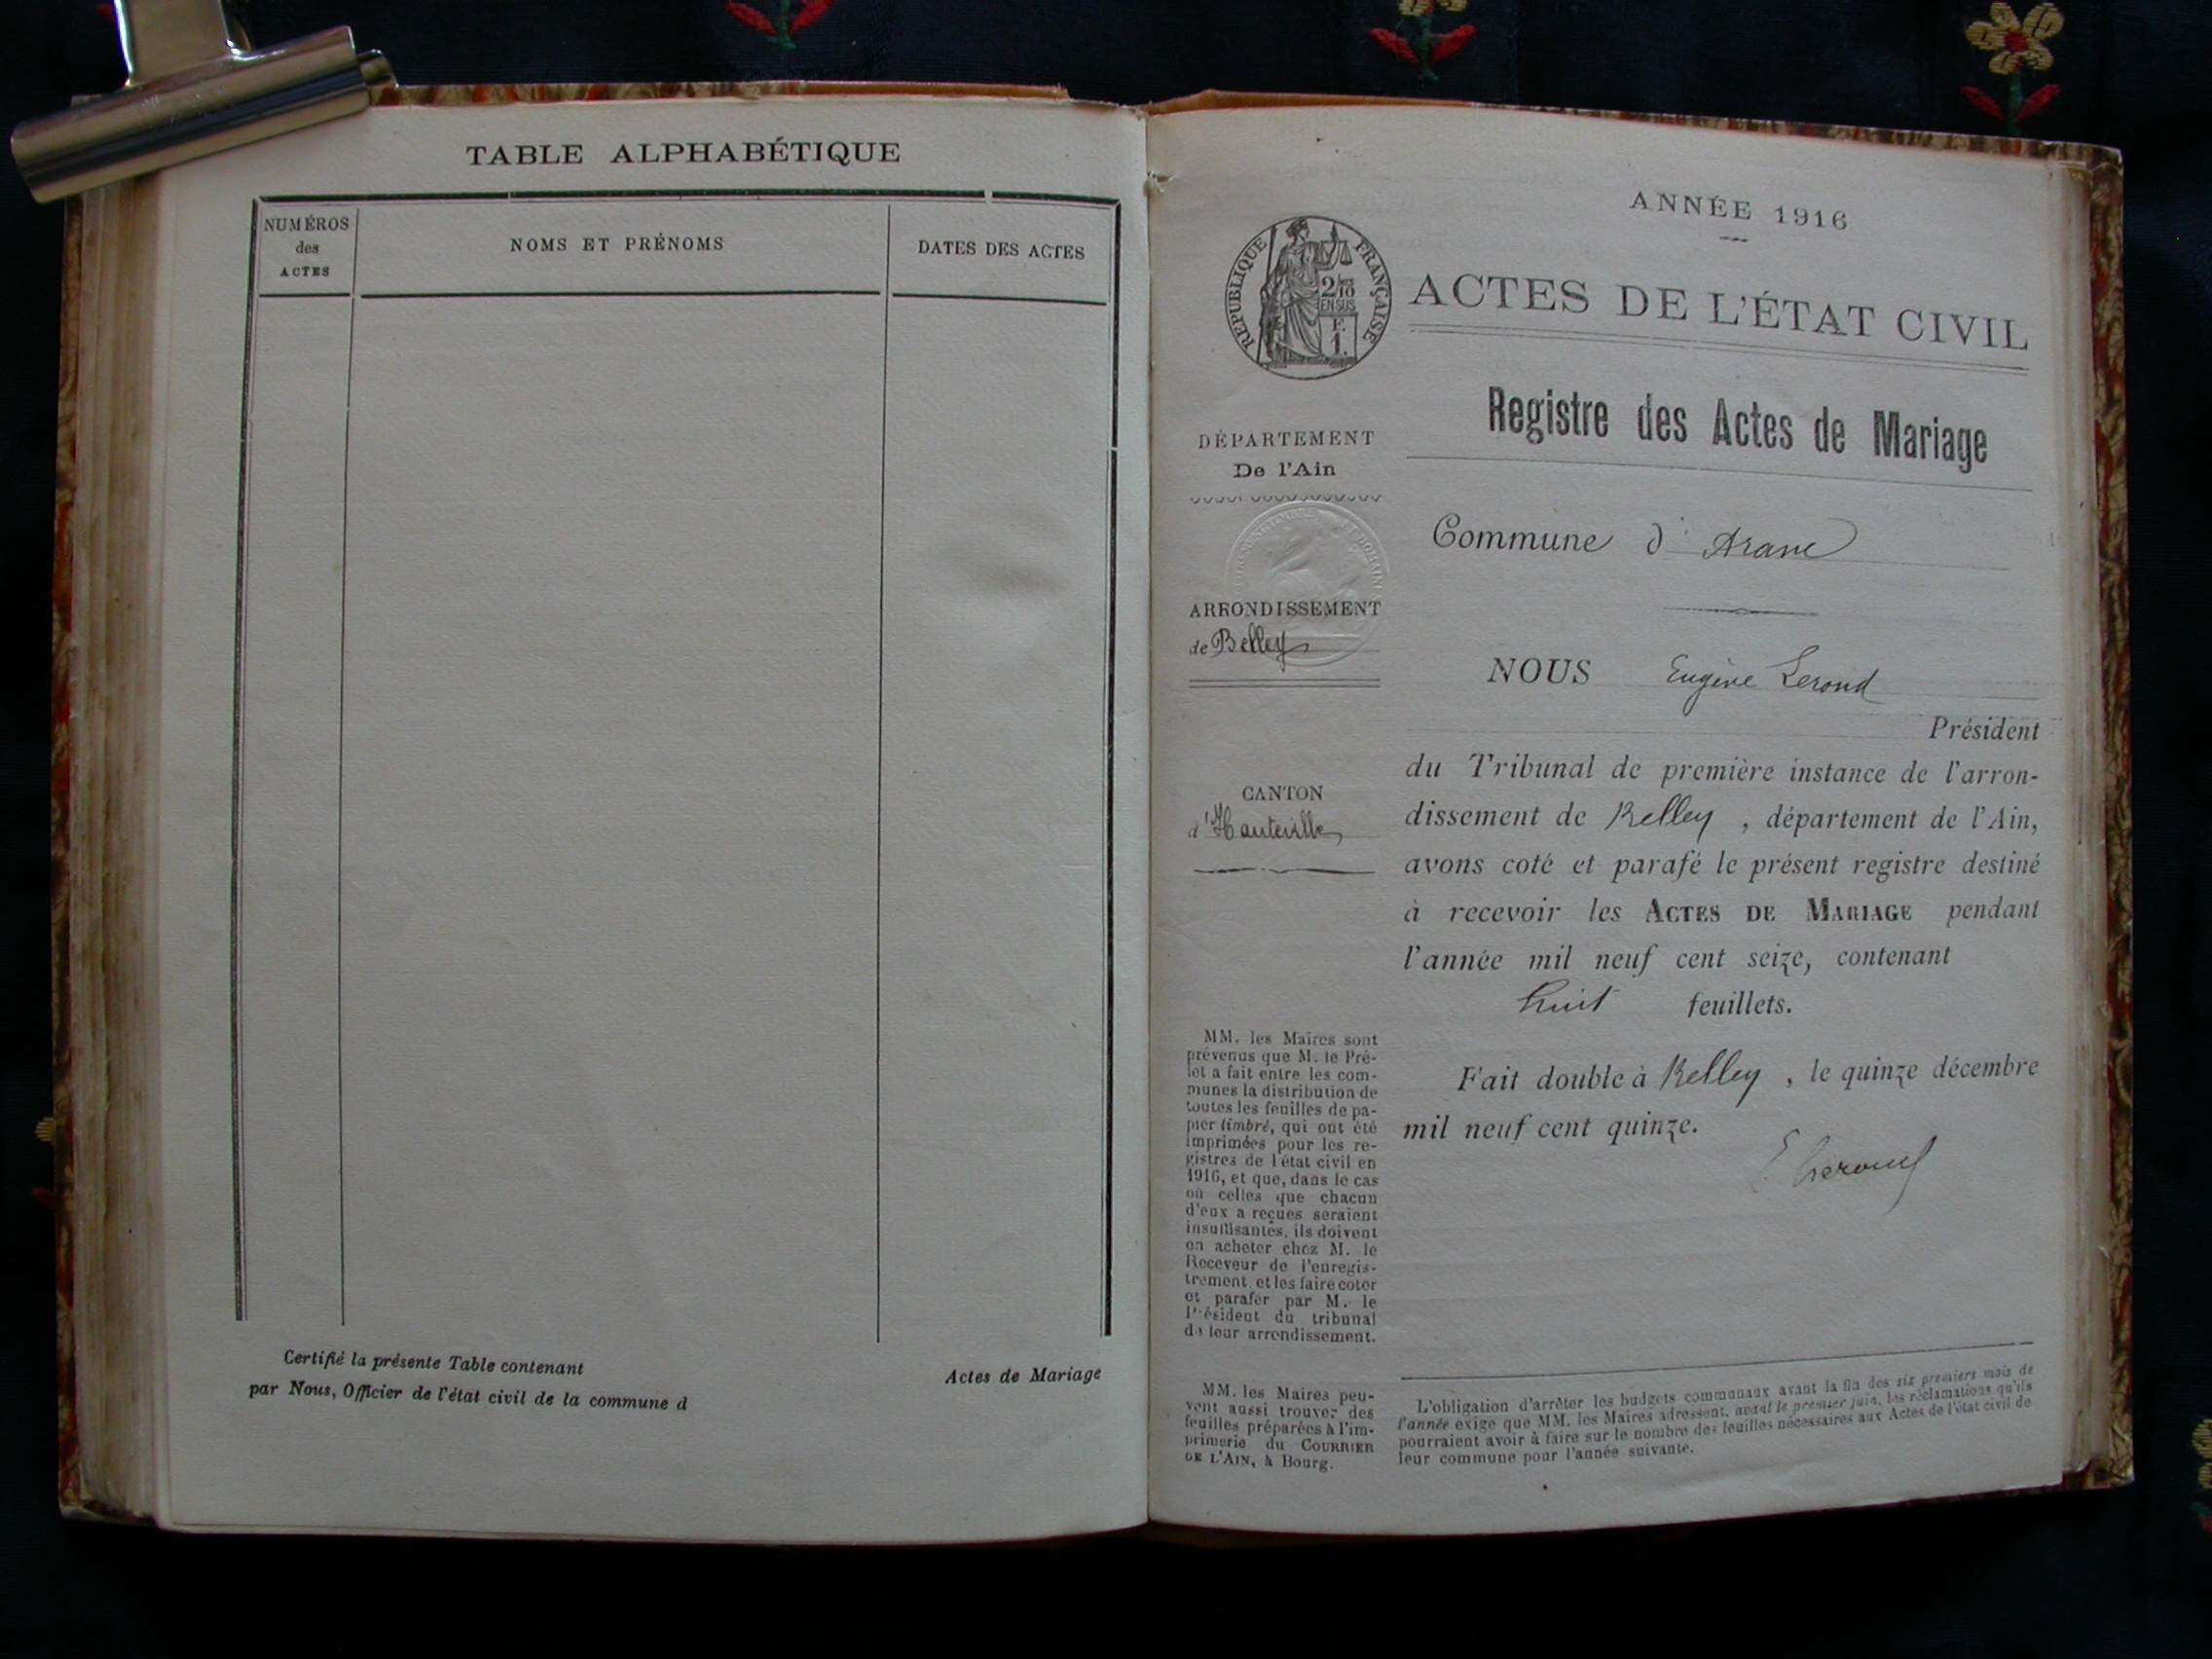 TABLE ALPHABÉTIQUE
NUMÉROS
des
ACTES
NOMS ET PRÉNOMS
DATES DES ACTES
Certifié la présente Table contenant
Actes de Mariage
par Nous, Officier de l'état civil de la commune d
ANNÉE 1916
RÉPUBLIQUE FRANÇAISE
2/10
EN SUS
F.
1.
ACTES DE L'ÉTAT CIVIL
Registre des Actes de Mariage
DÉPARTEMENT
De l'Ain
ARRONDISSEMENT
de Belley
CANTON
d'Hauteville
MM. les Maires sont
prévenus que M. le Pré-
fet a fait entre les com-
munes la distribution de
toutes les feuilles de pa-
pier timbré, qui ont été
imprimées pour les re-
gistres de l'état civil en
1916, et que, dans le cas
où celles que chacun
d'eux a reçues seraient
insuffisantes, ils doivent
en acheter chez M. le
Receveur de l'enregis-
trement et les faire coter
et parafer par M. le
Président du tribunal
de leur arrondissement.
MM. les Maires peu-
vent aussi trouver des
feuilles préparées à l'im-
primerie du COURRIER
DE L'AIN, à Bourg.
Commune d'Aranc
NOUS Eugène Lerond
Président
du Tribunal de première instance de l'arron-
dissement de Belley, département de l'Ain,
avons coté et parafé le présent registre destiné
à recevoir les ACTES DE MARIAGE pendant
l'année mil neuf cent seize, contenant
huit feuillets.
Fait double à Belley, le quinze décembre
mil neuf cent quinze.
E Lerond
L'obligation d'arrêter les budgets communaux avant la fin des six premiers mois de
l'année exige que MM. les Maires adressent, avant le premier juin, les réclamations qu'ils
pourraient avoir à faire sur le nombre des feuilles nécessaires aux Actes de l'état civil de
leur commune pour l'année suivante.